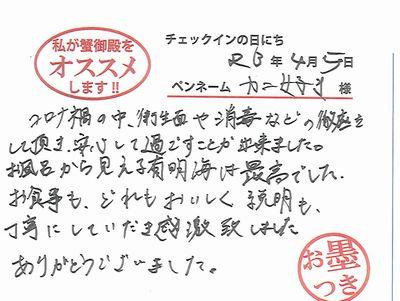 私が蟹御殿を
オススメ
します!!
チェックインの日にち
R3年4月5日
ペンネーム カニ好き 様
コロナ禍の中、衛生面や消毒などの徹底を
して頂き、安心して過ごすことが出来ました。
お風呂から見える有明海は最高でした。
お食事も、どれもおいしく説明も、
丁寧にしていただき感激致しました
ありがとうございました。
お墨
つき